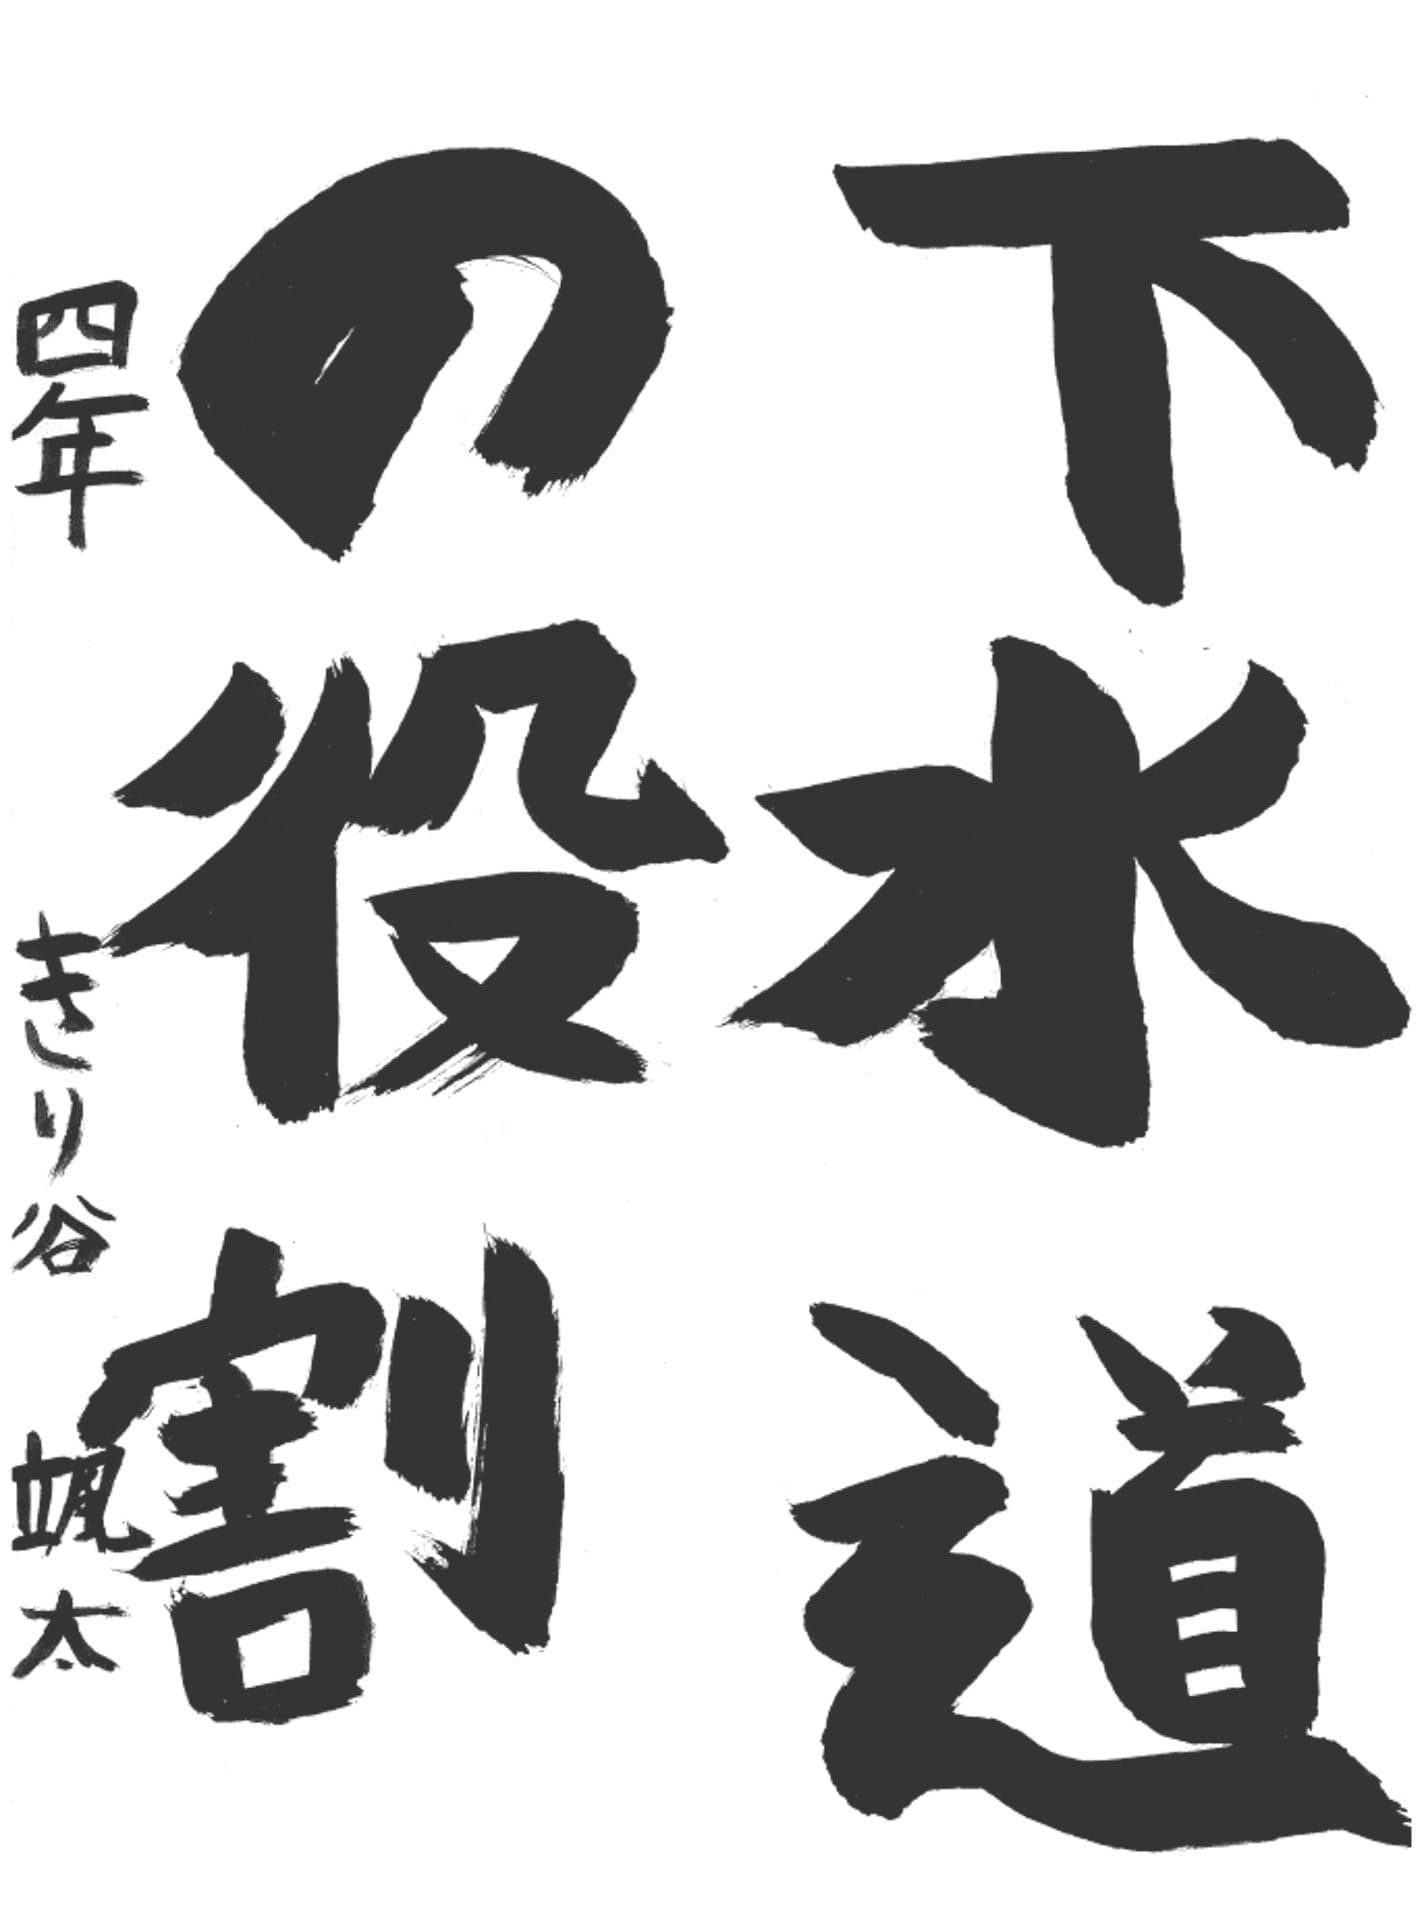 下水道
の役割
四年 きり谷 颯太